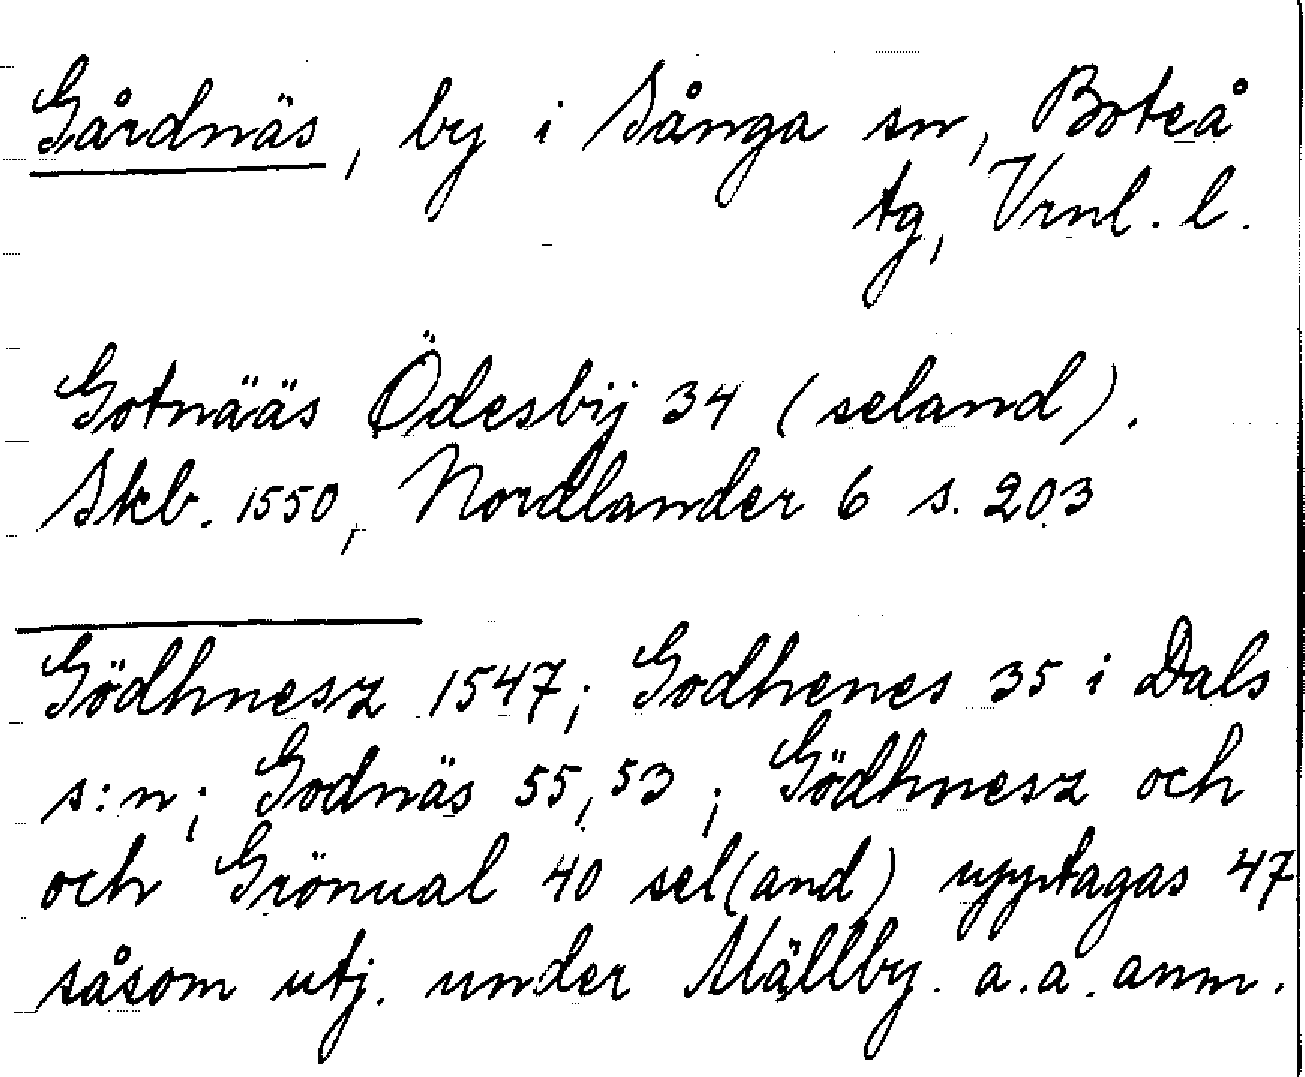 Gårdnäs, by i Sånga sn, Boteå
tg, Vrnl. l.
Gotnääs Ödesbij 34 (seland).
Skb. 1550, Nordlander 6 s. 203
Gödhnesz 1547; Godhenes 35 i Dals
s:n; Godnäs 55, 53; Gödhnesz och
och Grönual 40 sel(and) upptagas 47
såsom utj. under Mällby. a.a. anm.